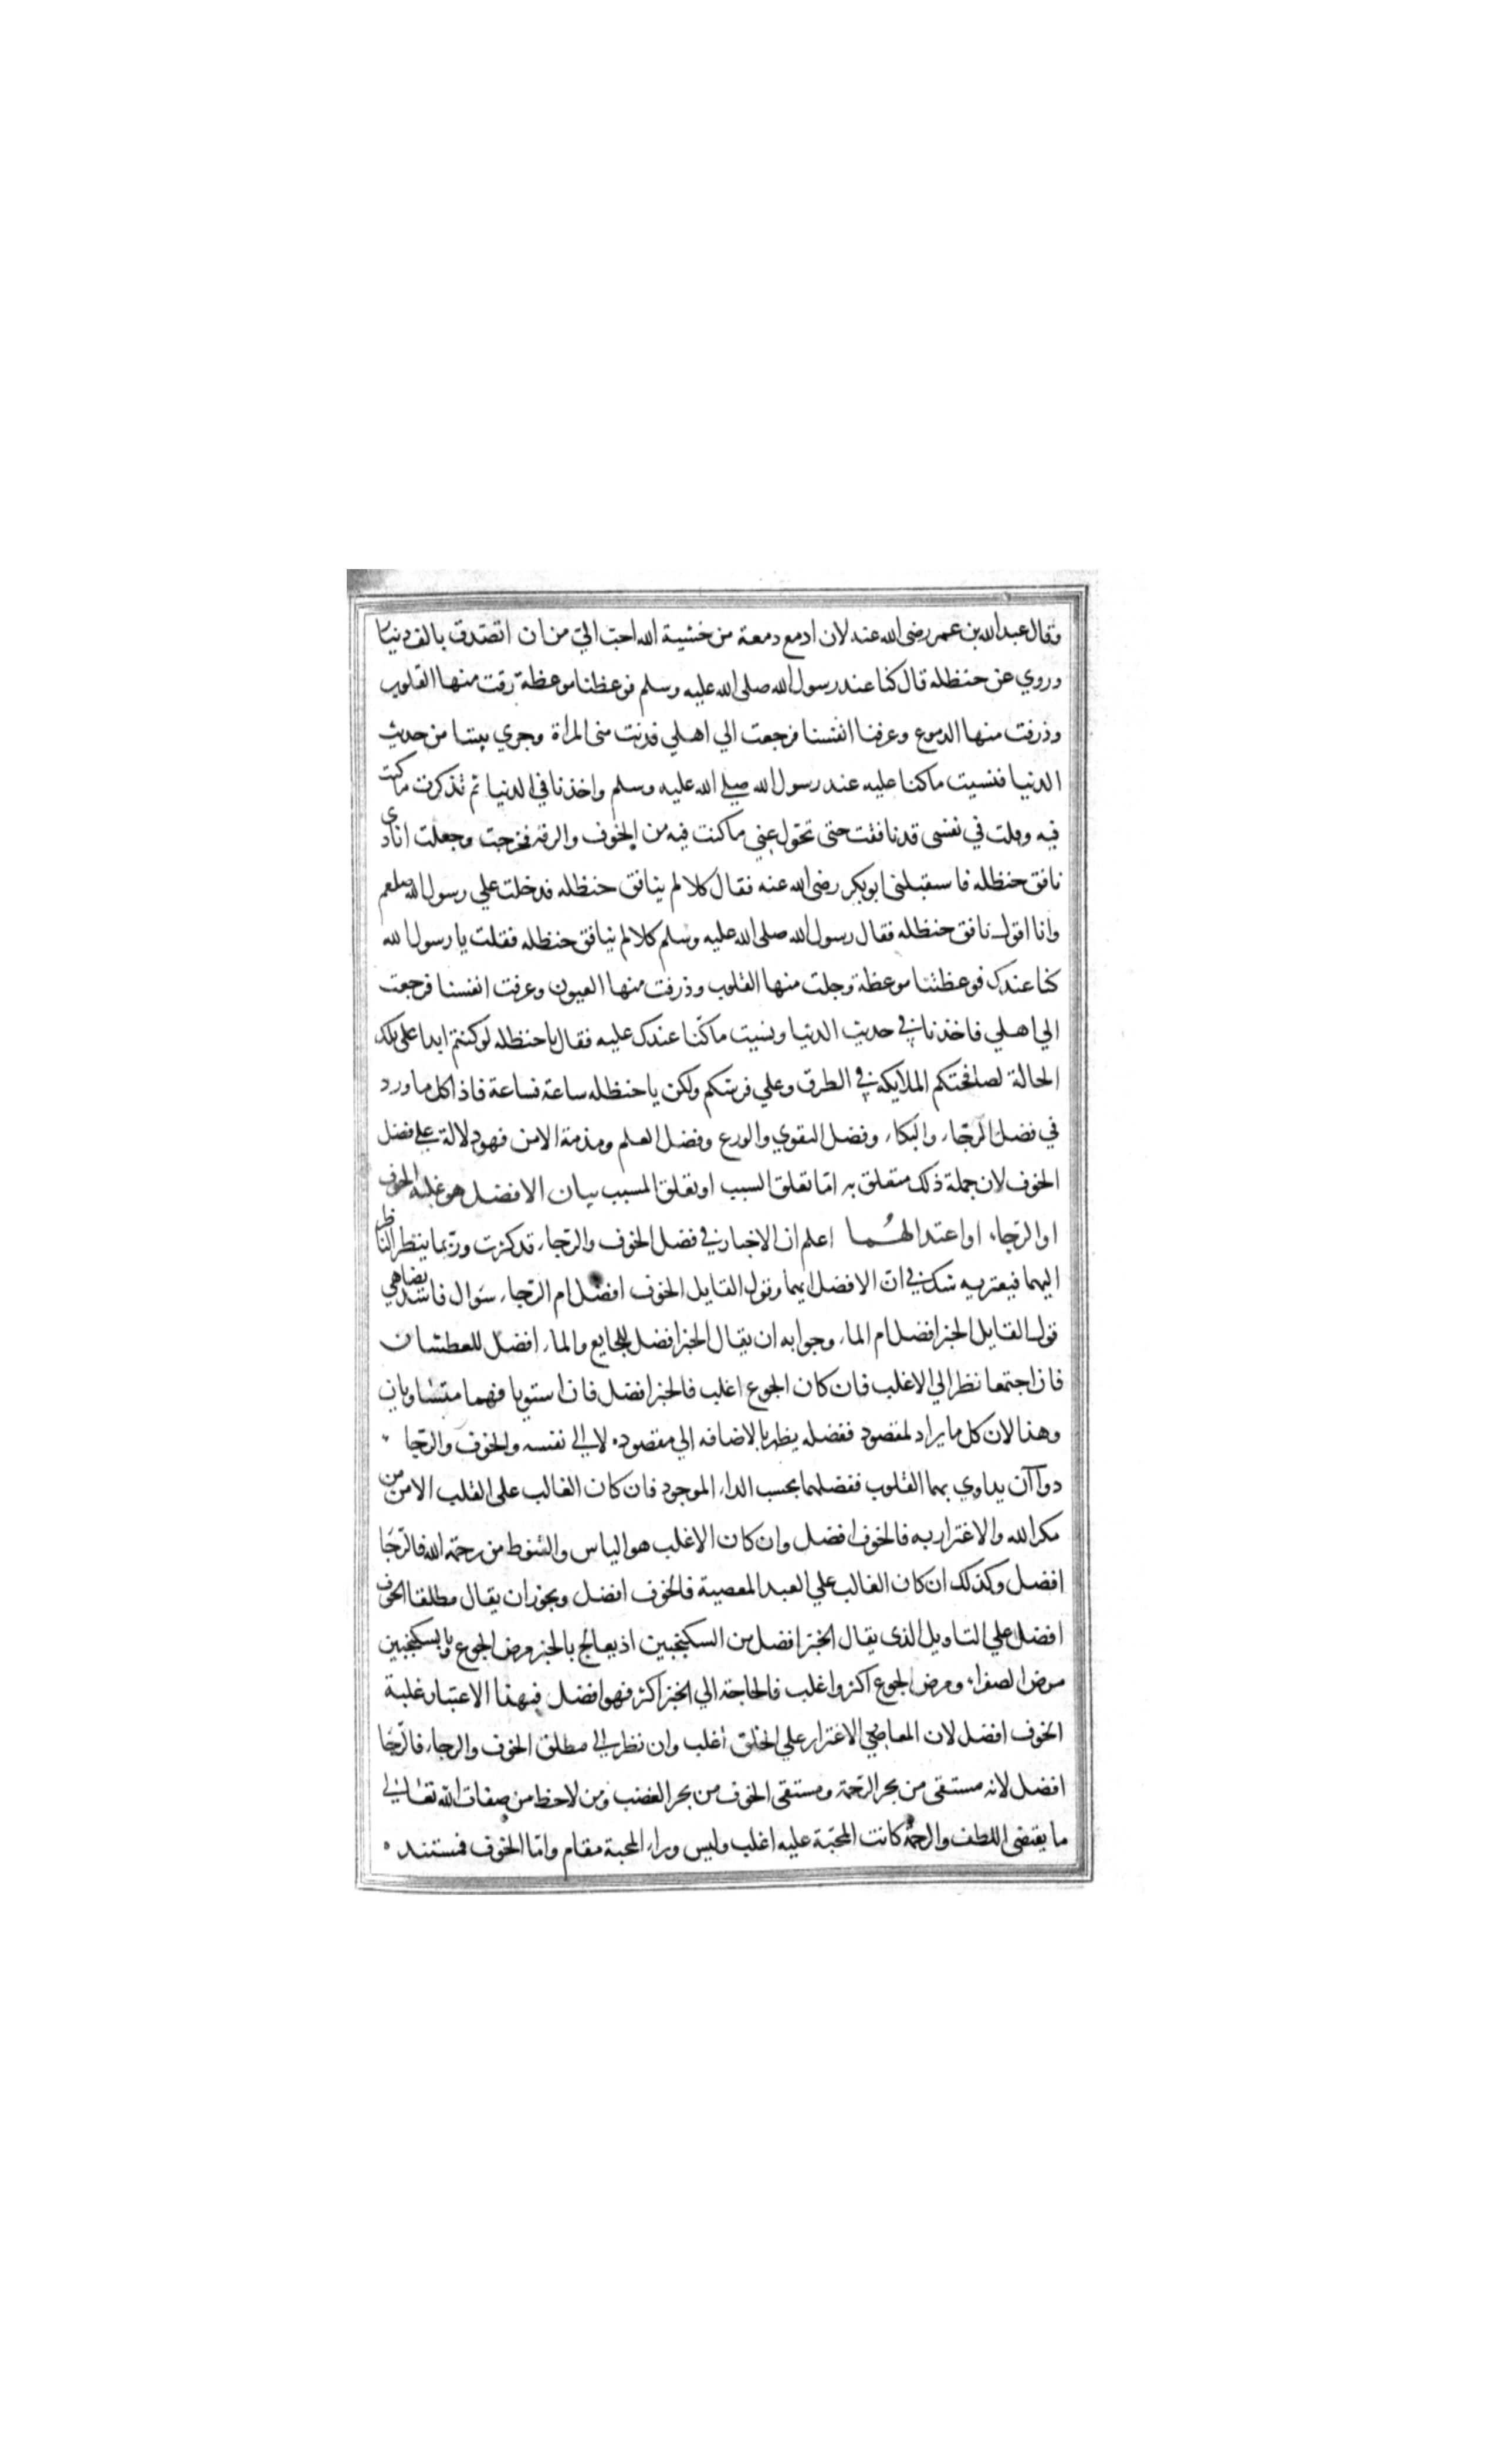 وقال عبد الله بن عمر رضى الله عنه لان ادمع دمعة من خشية الله احبّ اليّ من ان اتصدق بالف دينا
وروي عن حنظله قال كنا عند رسول الله صلى الله عليه وسلم فوعظنا موعظة رقت منها القلوب
وذرفت منها الدموع وعرفنا انفسنا فرجعت الي اهلي فدنت منى المراة وجري بيننا من حديث
الدنيا فنسيت ما كنا عليه عند رسول الله صلي الله عليه وسلم واخذنا في الدنيا ثم تذكرت ما كنت
فيه وقلت في نفسى قد نافقت حتى تحوّل عني ما كنت فيه من الخوف والرقه فخرجت وجعلت انادى
نافق حنظله فاستقبلنى ابو بكر رضى الله عنه فقال كلا لم ينافق حنظله فدخلت علي رسول الله صلعم
وانا اقول نافق حنظله فقال رسول الله صلى الله عليه وسلم كلا لم ينافق حنظله فقلت يا رسول الله
كنا عندك فوعظتنا موعظة وجلت منها القلوب وذرفت منها العيون وعرفت انفسنا فرجعت
الي اهلي فاخذنا في حديث الدنيا ونسيت ما كنا عندك عليه فقال يا حنظله لو كنتم ابدا على تلك
الحالة لصافحتكم الملايكه في الطرق وعلي فرشكم ولكن يا حنظله ساعة فساعة فاذا كل ما ورد
في فضل الرجّاء والبكاء وفضل التقوي والورع وفضل العلم ومذمة الامن فهو دلالة علي فضل
الخوف لان جملة ذلك متعلق به امّا تعلق السبب او تعلق المسبب بيان الافضل هو غلبة الخوف
او الرّجاء او اعتدالهُما اعلم ان الاخبار في فضل الخوف والرّجاء قد كثرت وربّما ينظر الناظر
اليهما فيعتريه شك في انّ الافضل ايهما وقول القايل الخوف افضل ام الرّجاء سَوال فاسد يضاهي
قول القايل الخبز افضل ام الماء وجوابه ان يقال الخبز افضل للجايع والماء افضل للعطشان
فان اجتمعا نظر الي الاغلب فان كان الجوع اغلب فالخبز افضل فان استويا فهما متساويان
وهذا لان كل ما يراد لمقصود ففضله يظهر بالاضافه الي مقصوده لا الي نفسه والخوف والرّجا
دوآآن يداوي بهما القلوب ففضلهما بحسب الداء الموجود فان كان الغالب على القلب الامن من
مكر الله والاغترار به فالخوف افضل وان كان الاغلب هو الياس والقنوط من رحمة الله فالرّجَا
افضل وكذلك ان كان الغالب علي العبد المعصية فالخوف افضل ويجوز ان يقال مطلقا الخوف
افضل علي التاويل الذى يقال الخبز افضل من السكنجبين اذ يعالج بالخبز مرض الجوع وبالسكنجبين
مرض الصفراء ومرض الجوع اكثر واغلب فالحاجة الي الخبز اكثر فهو افضل فبهذا الاعتبار غلبة
الخوف افضل لان المعاصي الاغترار علي الخلق اغلب وان نظر الي مطلق الخوف والرجاء فالرّجَا
افضل لانه مستقى من بحر الرّحمة ومستقى الخوف من بحر الغضب ومن لاحظ من صفات الله تعالي
ما يقتضى اللطف والرحمة كانت المحبّة عليه اغلب وليس وراء المحبة مقام وامّا الخوف فمستنده